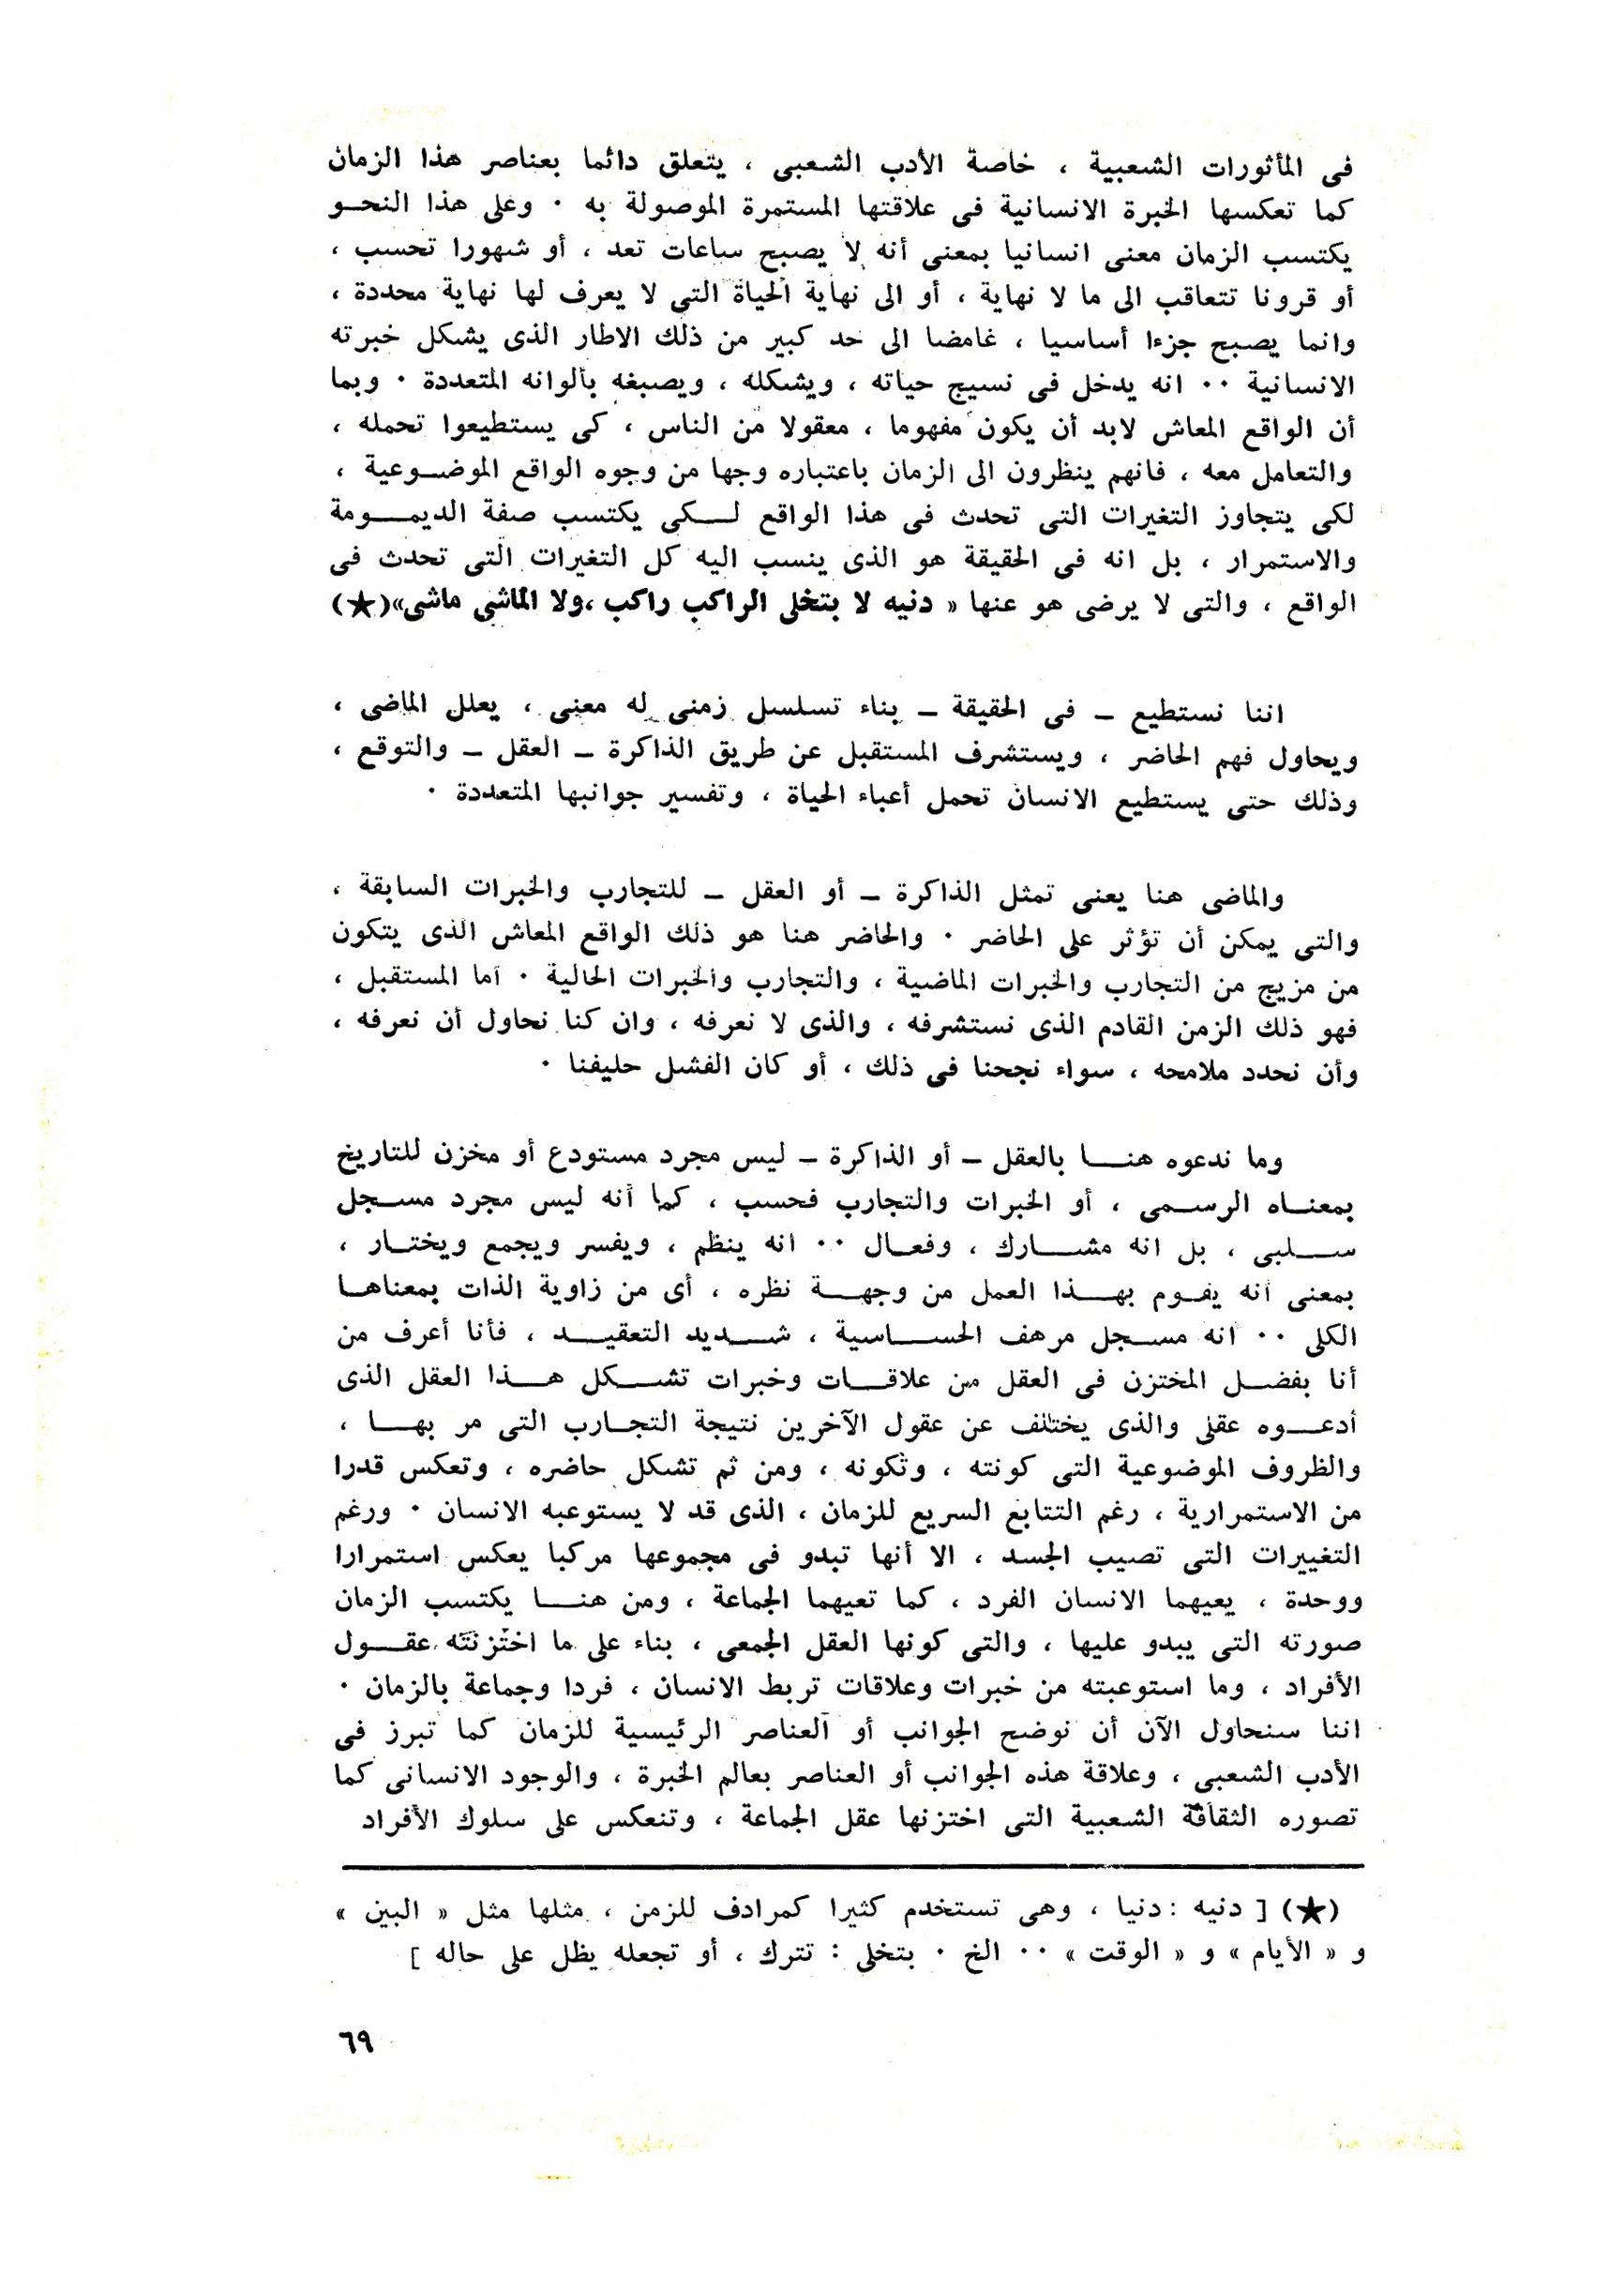 فى المأثورات الشعبية ، خاصة الأدب الشعبى ، يتعلق دائما بعناصر هذا الزمان
كما تعكسها الخبرة الانسانية فى علاقتها المستمرة الموصولة به ٠ وعلى هذا النحـو
يكتسب الزمان معنى انسانيا بمعنى أنه لا يصبح ساعات تعد ، أو شهورا تحسب ،
أو قرونا تتعاقب الى ما لا نهاية ، أو الى نهاية الحياة التى لا يعرف لها نهاية محددة ،
وانما يصبح جزءا أساسيا ، غامضا الى حد كبير من ذلك الاطار الذى يشكل خبرته
الانسانية ٠٠ انه يدخل فى نسيج حياته ، ويشكله ، ويصبغه بألوانه المتعددة ٠ وبما
أن الواقع المعاش لابد أن يكون مفهوما ، معقولا من الناس ، كى يستطيعوا تحمله ،
والتعامل معه ، فانهم ينظرون الى الزمان باعتباره وجها من وجوه الواقع الموضـوعية ،
لكى يتجاوز التغيرات التى تحدث فى هذا الواقع لـكى يكتسب صفة الديمـومة
والاستمرار ، بل انه فى الحقيقة هو الذى ينسب اليه كل التغيرات التى تحدث فى
الواقع ، والتى لا يرضى هو عنها « دنيه لا بتخلى الراكب راكب ،ولا الماشى ماشى»(★)
اننا نستطيع ـ فى الحقيقة ـ بناء تسلسل زمنى له معنى ، يعلل الماضى ،
ويحاول فهم الحاضر ، ويستشرف المستقبل عن طريق الذاكرة ـ العقل ـ والتوقع ،
وذلك حتى يستطيع الانسان تحمل أعباء الحياة ، وتفسير جوانبها المتعددة ٠
والماضى هنا يعنى تمثل الذاكرة ـ أو العقل ـ للتجارب والخبرات السابقة ،
والتى يمكن أن تؤثر على الحاضر ٠ والحاضر هنا هو ذلك الواقع المعاش الذى يتكون
من مزيج من التجارب والخبرات الماضية ، والتجارب والخبرات الحالية ٠ أما المستقبل ،
فهو ذلك الزمن القادم الذى نستشرفه ، والذى لا نعرفه ، وان كنا نحاول أن نعرفه ،
وأن نحدد ملامحه ، سواء نجحنا فى ذلك ، أو كان الفشل حليفنا ٠
وما ندعوه هنـا بالعقل ـ أو الذاكرة ـ ليس مجرد مستودع أو مخزن للتاريخ
بمعنـاه الرسـمى ، أو الخبرات والتجارب فحسب ، كما أنه ليس مجرد مسـجل
سـلبى ، بل انه مشـارك ، وفعـال ٠٠ انه ينظم ، ويفسر ويجمع ويختـار ،
بمعنى أنه يقـوم بهـذا العمل من وجهـة نظره ، أى من زاوية الذات بمعناهـا
الكلى ٠٠ انه مسـجل مرهف الحسـاسية ، شـديد التعقيـد ، فأنا أعرف من
أنا بفضـل المختزن فى العقل من علاقـات وخبرات تشـكل هـذا العقل الذى
أدعـوه عقلى والذى يختلف عن عقول الآخرين نتيجة التجـارب التى مر بهـا ،
والظروف الموضوعية التى كونته ، وتكونه ، ومن ثم تشكل حاضره ، وتعكس قدرا
من الاستمرارية ، رغم التتابع السريع للزمان ، الذى قد لا يستوعبه الانسان ٠ ورغم
التغييرات التى تصيب الجسد ، الا أنها تبدو فى مجموعها مركبا يعكس استمرارا
ووحدة ، يعيهما الانسان الفرد ، كما تعيهما الجماعة ، ومن هنـا يكتسب الزمان
صورته التى يبدو عليها ، والتى كونها العقل الجمعى ، بناء على ما اختزنته عقـول
الأفراد ، وما استوعبته من خبرات وعلاقات تربط الانسان ، فردا وجماعة بالزمان ٠
اننا سنحاول الآن أن نوضح الجوانب أو العناصر الرئيسية للزمان كما تبرز فى
الأدب الشعبى ، وعلاقة هذه الجوانب أو العناصر بعالم الخبرة ، والوجود الانسانى كما
تصوره الثقافة الشعبية التى اختزنها عقل الجماعة ، وتنعكس على سلوك الأفراد
(★) [ دنيه : دنيا ، وهى تستخدم كثيرا كمرادف للزمن ، مثلها مثل « البين »
و « الأيام » و « الوقت » ٠٠ الخ ٠ بتخلى : تترك ، أو تجعله يظل على حاله ]
٦٩